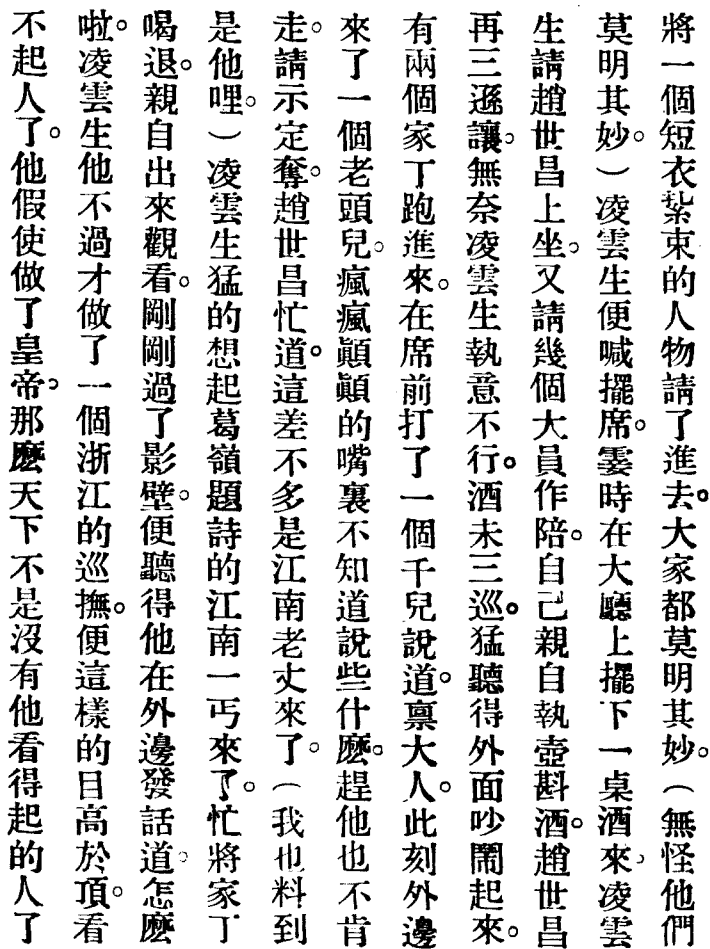 將一個短衣紮束的人物請了進去。大家都莫明其妙。（無怪他們
莫明其妙。）凌雲生便喊擺席。霎時在大廳上擺下一桌酒來、凌雲
生請趙世昌上坐。又請幾個大員作陪。自己親自執壺斟酒。趙世昌
再三遜讓。無奈凌雲生執意不行。酒未三巡。猛聽得外面吵鬧起來。
有兩個家丁跑進來。在席前打了一個千兒說道。禀大人。此刻外邊
來了一個老頭兒。瘋瘋顚顚的嘴裏不知道說些什麽。趕他也不肯
走。請示定奪。趙世昌忙道。這差不多是江南老丈來了。（我也料到
是他哩。）凌雲生猛的想起葛嶺題詩的江南一丐來了。忙將家丁
喝退。親自出來觀看。剛剛過了影壁。便聽得他在外邊發話道。怎麽
啦。凌雲生他不過才做了一個浙江的巡撫。便這樣的目高於頂。看
不起人了。他假使做了皇帝。那麽天下不是沒有他看得起的人了